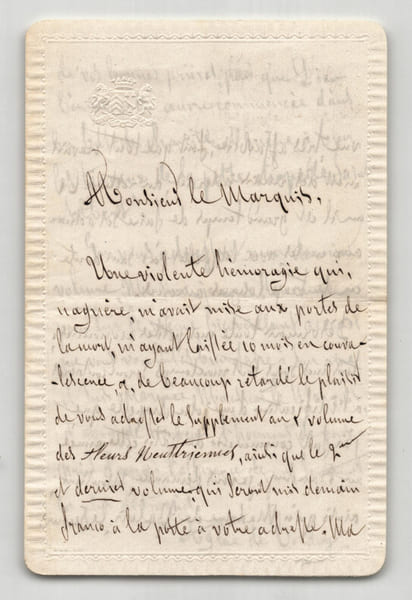 Monsieur le Marquis,
Une violente hémoragie qui,
naguère, m'avait mise aux portes de
la mort, m'ayant laissée 10 mois en conva-
-lescence, a, de beaucoup retardé le plaisir
de vous adresser le Supplement au volume
des Fleurs, ainsi que le 2me
et dernier volume, qui seront mis demain
franco à la poste à votre adresse. Ma